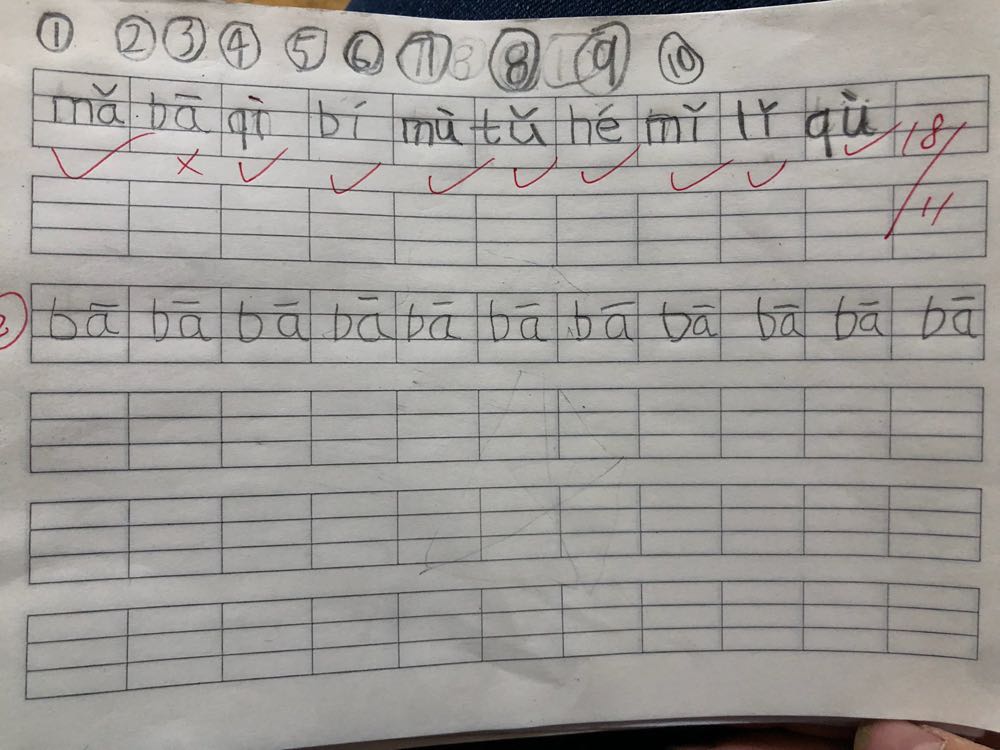 ① ② ③ ④ ⑤ ⑥ ⑦ ⑧ ⑨ ⑩
mǎ bā qì bí mù tǔ hé mǐ lǐ qù 18/11
bā bā bā bā bā bā bā bā bā bā bā